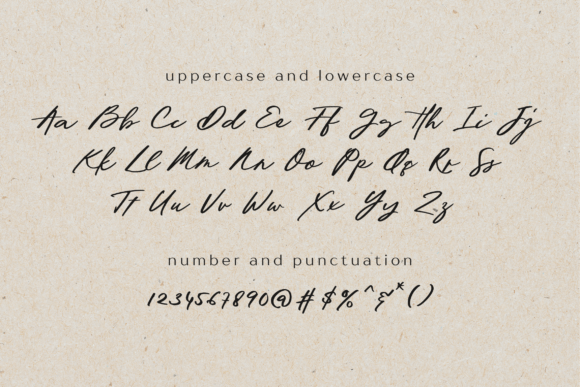 uppercase and lowercase
Aa Bb Cc Dd Ee Ff Gg Hh Ii Jj
Kk Ll Mm Nn Oo Pp Qq Rr Ss
Tt Uu Vv Ww Xx Yy Zz
number and punctuation
1234567890@#$%^&*()